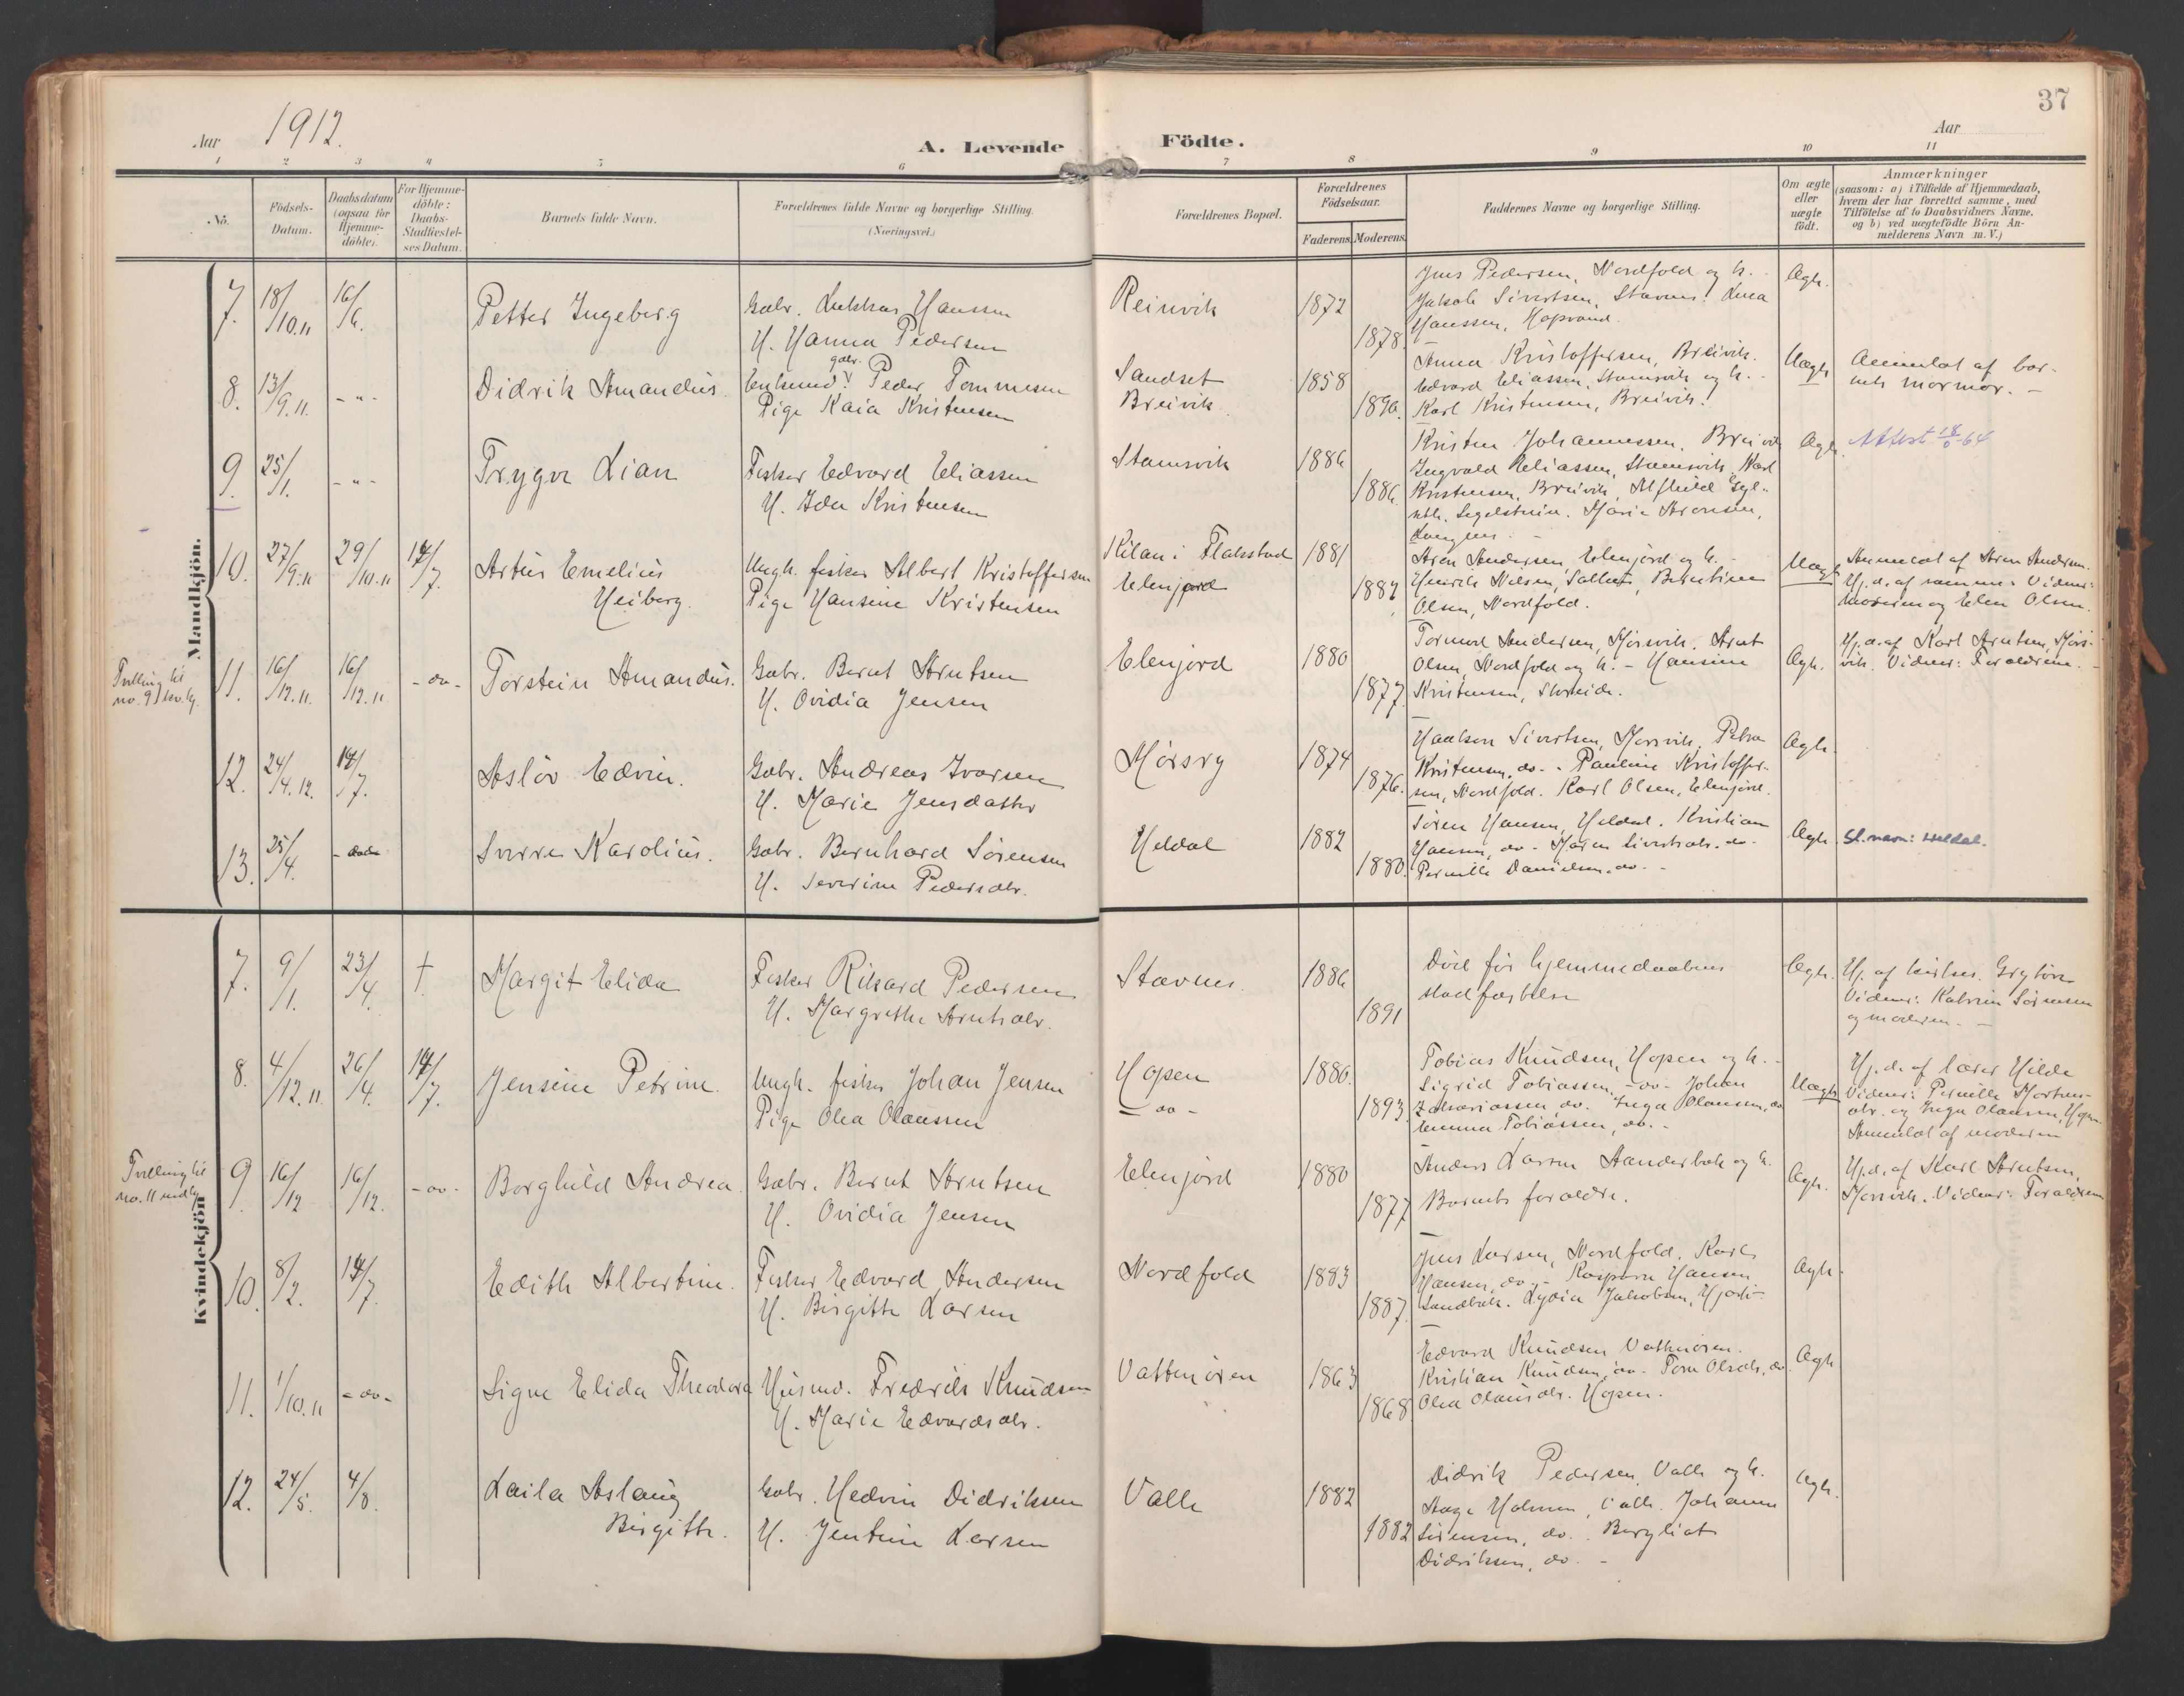 37
Aar 1912.
A. Levende Födte.
Aar
1 2 3 4 5 6 7 8 9 10 11
No.
Födsels-
Datum.
Daabsdatum
(ogsaa for
Hjemme-
döbte).
For Hjemme-
döbte:
Daabs-
Stadfæstel-
ses Datum.
Barnets fulde Navn.
Forældrenes fulde Navne og borgerlige Stilling.
(Næringsvei.)
Forældrenes Bopæl.
Forældrenes
Födselsaar.
Faderens. Moderens.
Faddernes Navne og borgerlige Stilling.
Om ægte
eller
uægte
födt.
Anmærkninger
(saasom: a) i Tilfælde af Hjemmedaab,
hvem der har forrettet samme, med
Tilföielse af to Daabsvidners Navne,
og b) ved uægtefödte Börn An-
melderens Navn m. V.)
Mandkjön.
7. 18/10.11 16/6.
Petter Ingeberg
Gbr. Hanssen
H. Hanna Pedersen
Reinvik
1872
1878.
Jens Pedersen, Nordfold og h. -
Jakob Sivertsen, Stavnes.
Hanssen, Hopvand.
Ægte.
8. 13/9.11. - " -
Didrik Amandus.
gbr.
Enkemd. Peder Tommesen
Pige Kaia Kristensen
Sandset
Breivik.
1858
1890.
Anna Kristoffersen, Breivik.
Edvard Eliassen, Stamsvik og h. -
Karl Kristensen, Breivik.
Uægte
Anmeldt af bar-
nets mormor. -
9. 25/1. - " -
Trygve Lian
Fisker Edvard Eliassen
H. Ida Kristensen
Stamsvik
1886
1886.
Kristen Johannessen, Breivik
Ingvald Eliassen, Stamsvik. Karl
Kristensen, Breivik,
Marie Aronsen,
Ægte.
Attest
10. 27/9.11 29/10.11 14/7.
Artur Emelius
Heiberg.
Ungk. fisker Albert Kristoffersen
Pige Hansine Kristensen
Kilan i Flakstad
Elenjord
1881
1887
Aron Andersen, Elenjord og h. -
Henrik Nilsen, Berntine
Olsen, Nordfold.
Uægte
Anmeldt af Aron Andersen.
Hj.d. af samme. Vidner:
Moderen og Elen Olsen.
Tvilling til
no. 9 kv.kj.
11. 16/12.11. 16/12.11 - do -
Torstein Amandus.
Gbr. Bernt Arntsen
H. Ovidia Jensen
Elenjord
1880
1877.
Tormod Andersen, Mørsvik. Arnt
Olsen, Nordfold og h. - Hansine
Kristensen,
Ægte.
Hj.d. af Karl Arntsen, Mørs-
vik. Vidner: Forældrene. -
12. 24/4.12. 14/7.
Asløv Edvin.
Gbr. Andreas Ivarsen
H. Marie Jensdatter
Mørsry
1874
1876.
Haakon Sivertsen, Mørsvik, Petra
Kristensen, do. - Pauline Kristoffer-
sen, Nordfold. Karl Olsen, Elenjord.
Ægte.
13. 25/4. - do -
Sverre Karolius.
Gbr. Bernhard Sørensen
H. Severine Pedersdtr.
Heldal
1882
1880.
Søren Hansen, Heldal. Kristian
Hansen, do - Maren Sivertsdtr. do -
Pernille Danielsen, do. -
Ægte.
Sl.navn: Heldal.
Kvindekjön
7. 9/1. 23/4. †
Margit Elida
Fisker Rikard Pedersen
H. Margrethe Arntsdtr.
Stavnes.
1886
1891
Død før hjemmedaabens
stadfæstelse
Ægte.
Hj. af
Vidner: Katrine Sørensen
og moderen. -
8. 4/12.11. 26/4. 14/7.
Jensine Petrine.
Ungk. fisker Johan Jensen
Pige Olea Olaussen
Hopen
- do -
1880.
1893.
Tobias Knudsen, Hopen og h. -
Sigrid Tobiassen, - do - Johan
Zakariassen, do. Inga Olaussen, do
Emma Tobiassen, do. -
Uægte
Hj.d. af lærer Hilde
Vidner: Pernille Mortens-
dtr. og Inga Olaussen, Hopen.
Anmeldt af moderen
Tvilling til
no. 11 mdkj
9. 16/12 16/12. - do -
Borghild Andrea.
Gbr. Bernt Arntsen
H. Ovidia Jensen
Elenjord
1880
1877
Anders Larsen og h.
Barnets forældre.
Ægte.
Hj.d. af Karl Arntsen,
Mørsvik. Vidner: Forældrene
10. 8/2. 14/7.
Edith Albertine.
Fisker Edvard Andersen
H. Birgitte Larsen
Nordfold
1883
1887.
Jens Larsen, Nordfold. Karl
Hansen, do. - Kaspara Hansen
Sandbak. Lydia Jakobsen,
Ægte.
11. 1/10.11 - do -
Signe Elida Theodora
Husmd. Fredrik Knudsen
H. Marie Edvardsdtr.
Vattenøren
1863
1868.
Edvard Knudsen Vattenøren.
Kristian Knudsen, do - Olsdtr, do.
Olea Olausdtr. Hopen.
Ægte
12. 24/5. 4/8.
Laila Aslaug
Birgitte.
Gbr. Hedvin Didriksen
H. Jentine Larsen
Valle
1882
1882
Didrik Pedersen, Valle og h.
Aage Holmen, Valle. Johanna
Sørensen, do. Bergliot
Didriksen, do. -
Ægte.